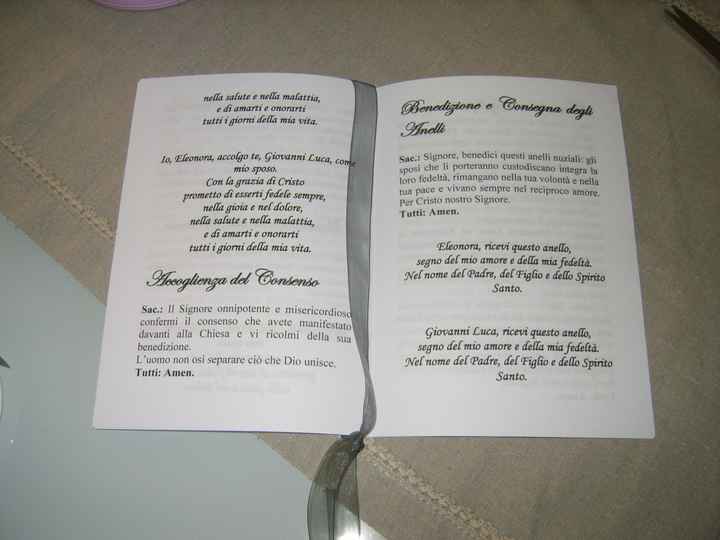 nella salute e nella malattia,
e di amarti e onorarti
tutti i giorni della mia vita.
Io, Eleonora, accolgo te, Giovanni Luca, come
mio sposo.
Con la grazia di Cristo
prometto di esserti fedele sempre,
nella gioia e nel dolore,
nella salute e nella malattia,
e di amarti e onorarti
tutti i giorni della mia vita.
Accoglienza del Consenso
Sac.: Il Signore onnipotente e misericordioso
confermi il consenso che avete manifestato
davanti alla Chiesa e vi ricolmi della sua
benedizione.
L'uomo non osi separare ciò che Dio unisce.
Tutti: Amen.
Benedizione e Consegna degli
Anelli
Sac.: Signore, benedici questi anelli nuziali: gli
sposi che li porteranno custodiscano integra la
loro fedeltà, rimangano nella tua volontà e nella
tua pace e vivano sempre nel reciproco amore.
Per Cristo nostro Signore.
Tutti: Amen.
Eleonora, ricevi questo anello,
segno del mio amore e della mia fedeltà.
Nel nome del Padre, del Figlio e dello Spirito
Santo.
Giovanni Luca, ricevi questo anello,
segno del mio amore e della mia fedeltà.
Nel nome del Padre, del Figlio e dello Spirito
Santo.